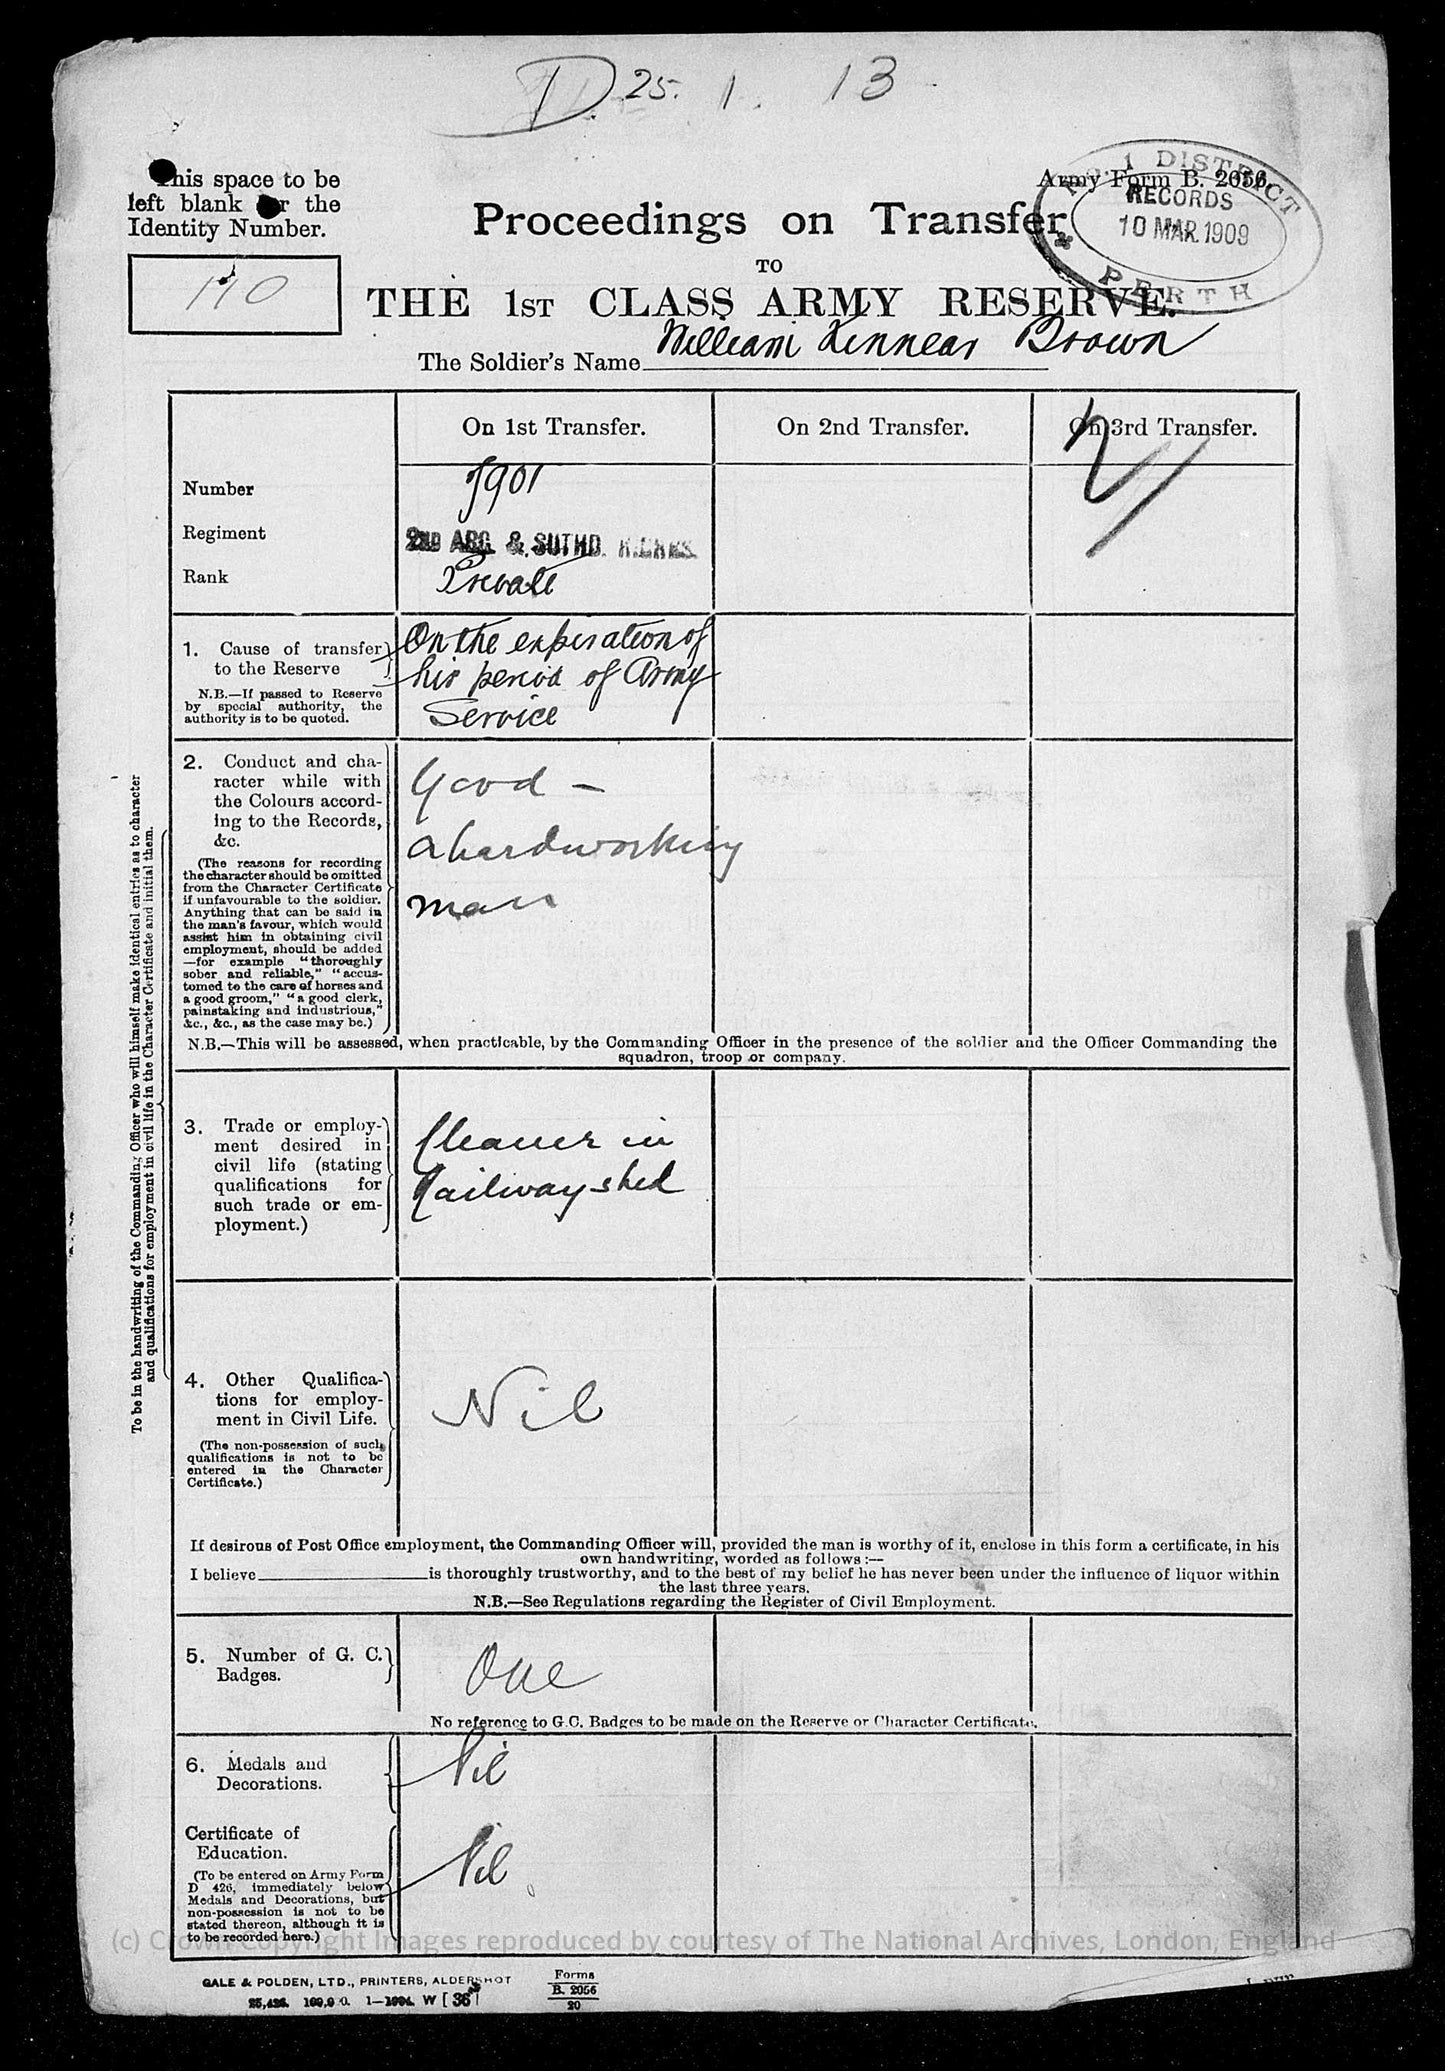 D. 25. 1. 13
This space to be
left blank for the
Identity Number.
110
Army Form B. 2056.
No. 1 DISTRICT
RECORDS
10 MAR. 1909
PERTH
Proceedings on Transfer
TO
THE 1ST CLASS ARMY RESERVE.
The Soldier's Name William Kinnear Brown
On 1st Transfer.
On 2nd Transfer.
On 3rd Transfer.
Number
901
Regiment
2ND ARG. & SUTHD. HIGHRS.
Rank
Private
1. Cause of transfer
to the Reserve
N.B.—If passed to Reserve
by special authority, the
authority is to be quoted.
On the expiration of
his period of Army
Service
2. Conduct and cha-
racter while with
the Colours accord-
ing to the Records,
&c.
(The reasons for recording
the character should be omitted
from the Character Certificate
if unfavourable to the soldier.
Anything that can be said in
the man's favour, which would
assist him in obtaining civil
employment, should be added
—for example "thoroughly
sober and reliable," "accus-
tomed to the care of horses and
a good groom," "a good clerk,
painstaking and industrious,"
&c., &c., as the case may be.)
Good –
a hardworking
man
N.B.—This will be assessed, when practicable, by the Commanding Officer in the presence of the soldier and the Officer Commanding the
squadron, troop or company.
To be in the handwriting of the Commanding Officer who will himself make identical entries as to character
and qualifications for employment in civil life in the Character Certificate and initial them.
3. Trade or employ-
ment desired in
civil life (stating
qualifications for
such trade or em-
ployment.)
Cleaner in
Railway shed
4. Other Qualifica-
tions for employ-
ment in Civil Life.
(The non-possession of such
qualifications is not to be
entered in the Character
Certificate.)
Nil
If desirous of Post Office employment, the Commanding Officer will, provided the man is worthy of it, enclose in this form a certificate, in his
own handwriting, worded as follows:—
I believe is thoroughly trustworthy, and to the best of my belief he has never been under the influence of liquor within
the last three years.
N.B.—See Regulations regarding the Register of Civil Employment.
5. Number of G. C.
Badges.
One
No reference to G.C. Badges to be made on the Reserve or Character Certificate.
6. Medals and
Decorations.
Nil
Certificate of
Education.
(To be entered on Army Form
D 426, immediately below
Medals and Decorations, but
non-possession is not to be
stated thereon, although it is
to be recorded here.)
Nil
(c) Crown Copyright Images reproduced by courtesy of The National Archives, London, England
GALE & POLDEN, LTD., PRINTERS, ALDERSHOT
25,426. 1—1904. W [36]
Forms
B. 2056
20